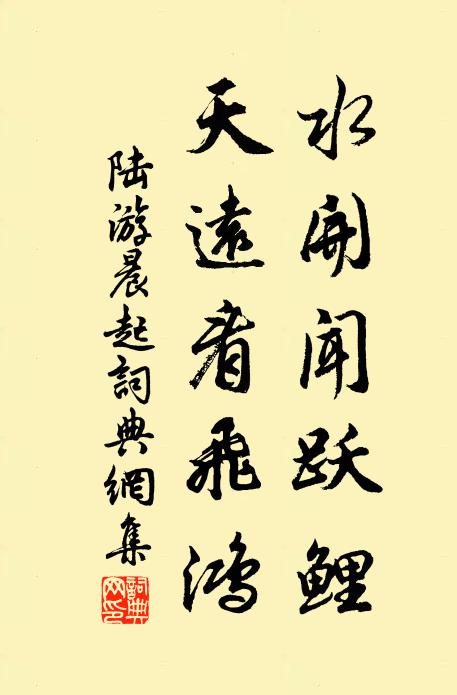 水開闻跃鲤
天遠看飛鸿
陆游晨起詞典網集
詞典网印